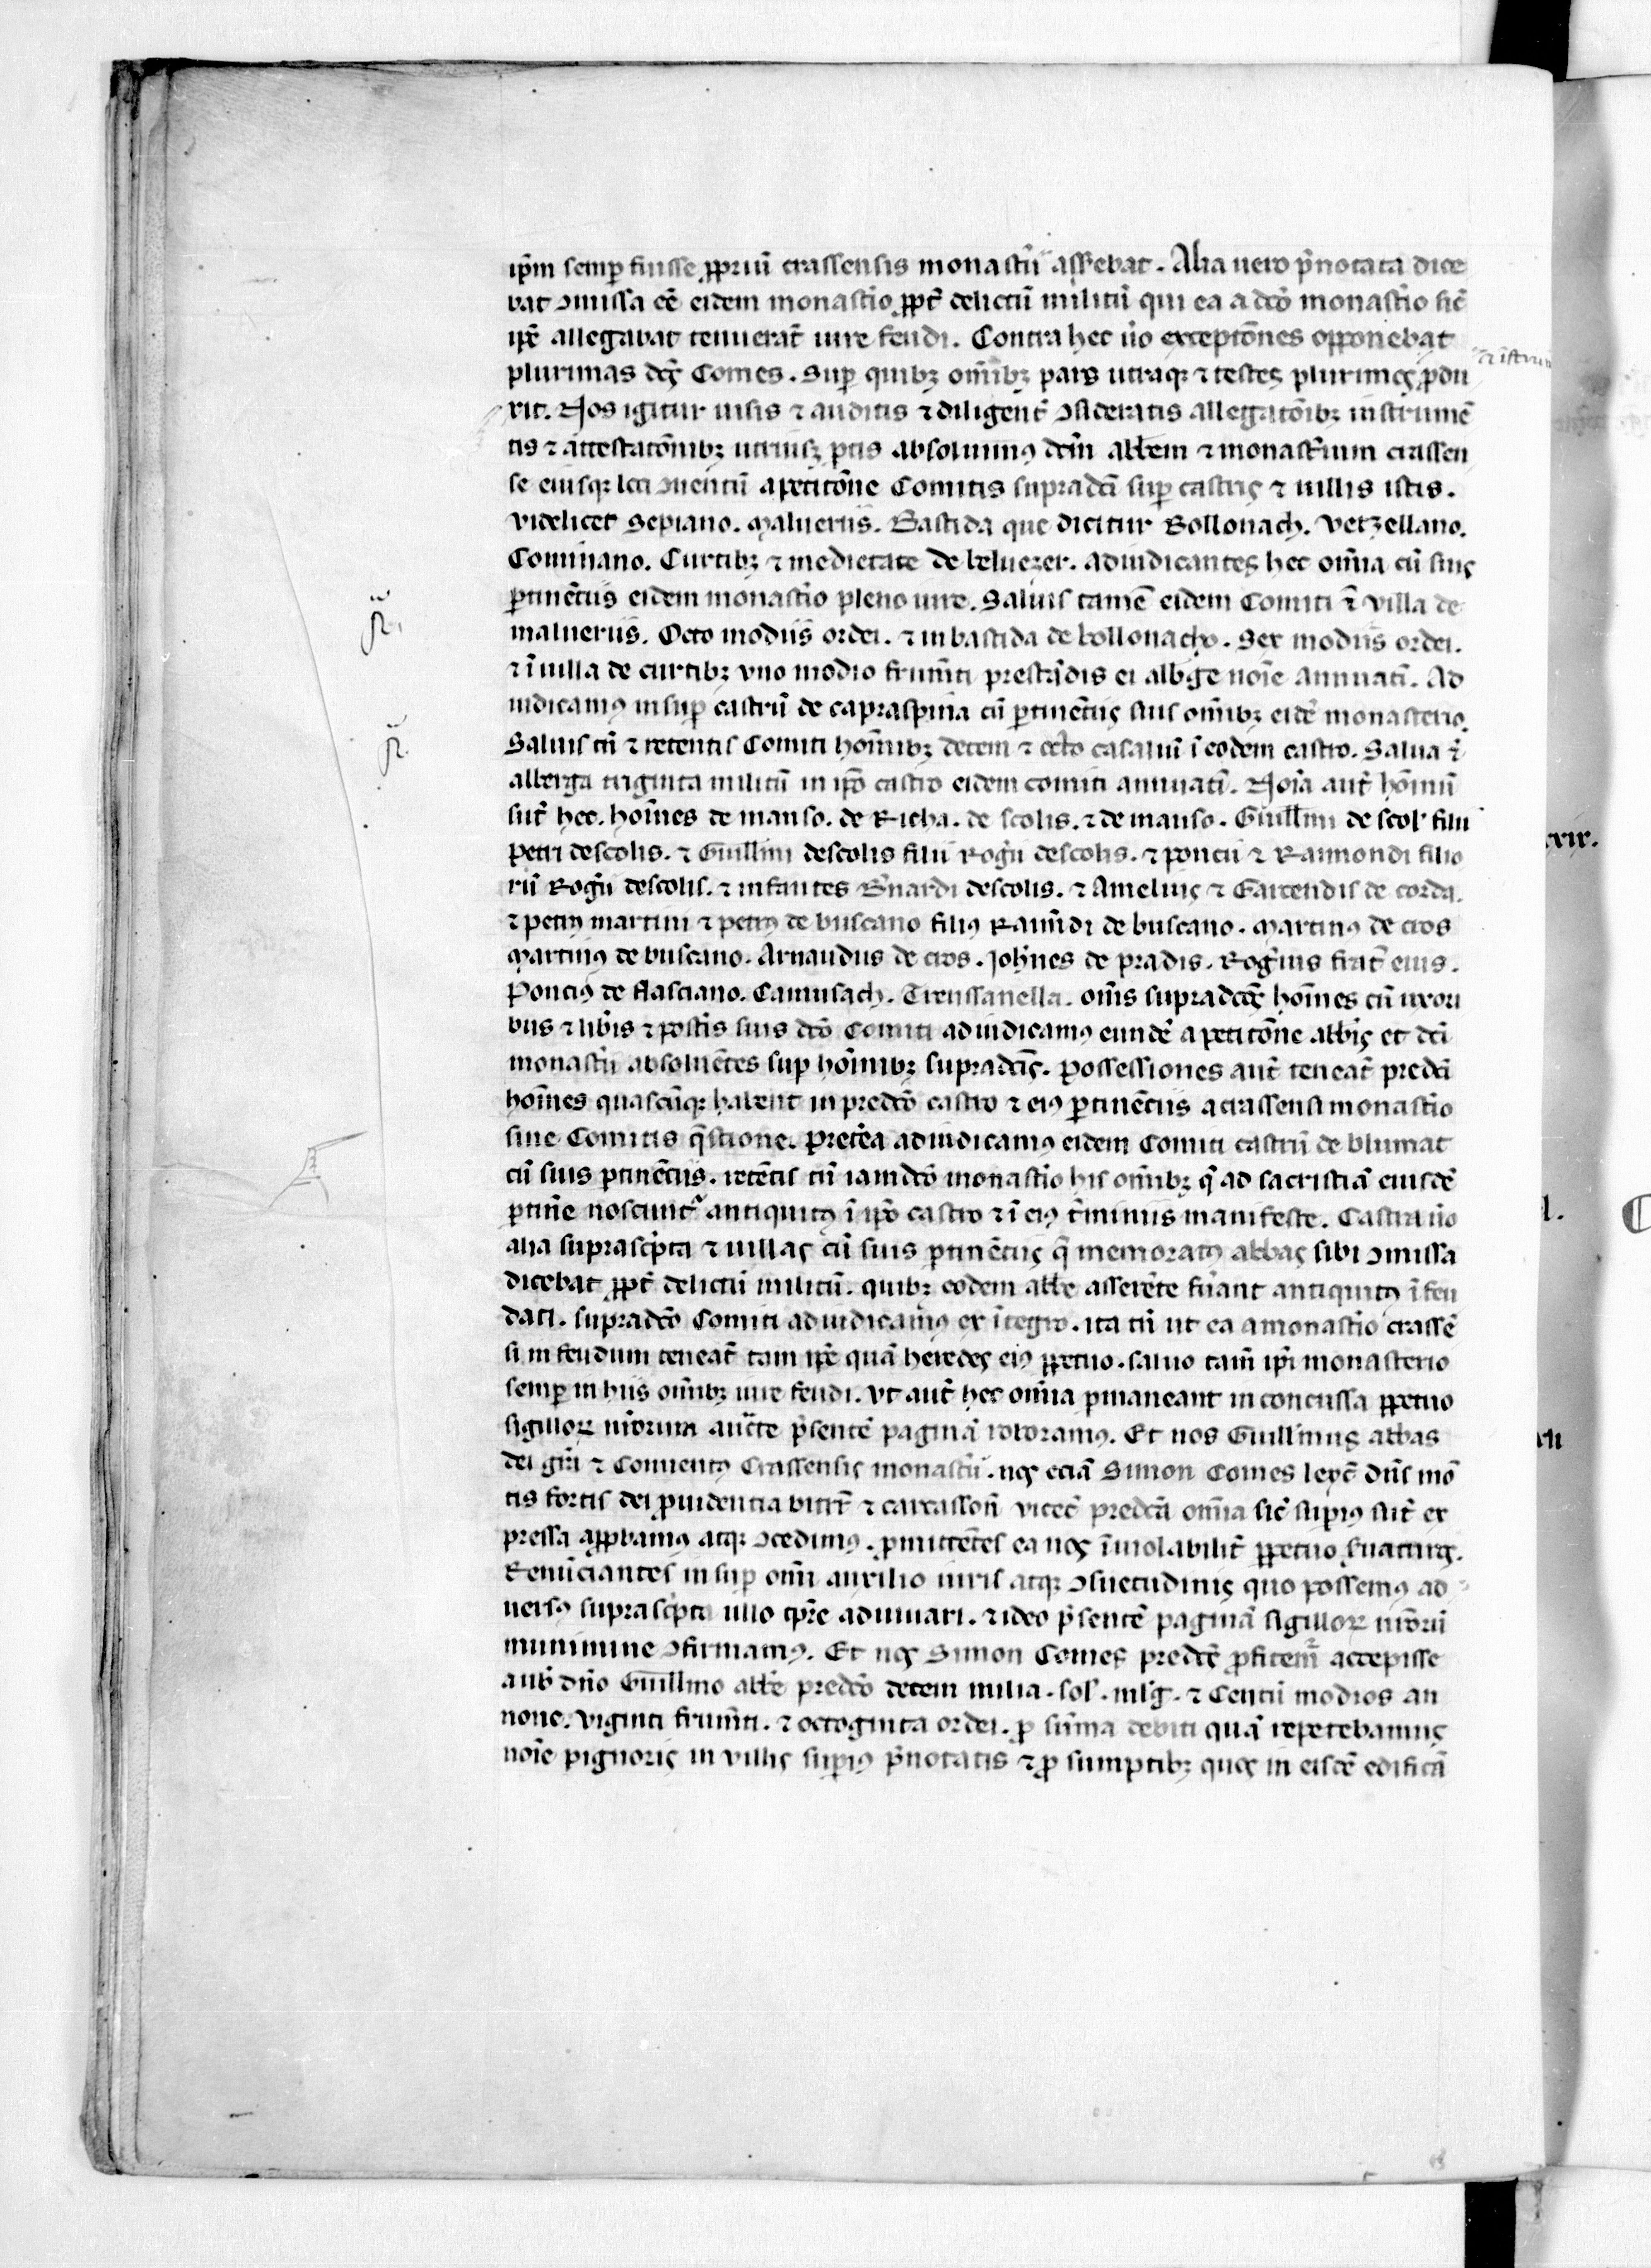 ip̄m semꝑ fuisse ꝓpriū crassensis monast̄ii asse᷑bat. Alia uero p̄notata dice
bat ꝯmissa eē eidem monast̄io ꝓpt̄ delictū militū qui ea a dc̄o monast̄io sic̄
ip̄e allegabat tenuerāt iure feudi. Contra hec ũo exceptōnes opponebat
plurimas dc̄ꝰ Comes. Suꝑ quibꝫ om̄ibꝫ pars utraqꝫ ⁊ testes plurimos ꝓdu
xit. Nos igitur uisis ⁊ auditis ⁊ diligent̄ ꝯsideratis allegatōibꝫ instrumē
tis ⁊ attestatōnibꝫ utriusqꝫ ꝑtis absoluimꝰ dc̄m abb̄em ⁊ monast̄ium crassen
se eiusqꝫ loci ꝯuentū a petitōne Comitis supradc̄i suꝑ castris ⁊ uillis istis.
Videlicet Sepiano. Malueriis. Bastida que dicitur Bollonach. Vetzellano.
Comiñano. Curtibꝫ ⁊ medietate de beluezer. adiudicantes hec om̄ia cū suis
ꝑtinētiis eidem monast̄io pleno iure. Saluis tamē eidem Comiti ī villa de
malueriis. Octo modiis ordei. ⁊ in bastida de bollonacho. Sex modiis ordei.
⁊ ī uilla de curtibꝫ vno modio frum̄ti prestādis ei alb̄ge noīe annuatī. Ad
iudicamꝰ insuꝑ castrū de capraspina cū ꝑtinētiis suis om̄ibꝫ eidē monasterio.
Saluis tn̄ ⁊ retentis Comiti hom̄ibꝫ decem ⁊ octo casalium ī eodem castro. Salua ⁊̄
alberga triginta militū in ip̄o castro eidem comiti annuatī. Noīa aut̄ hōminū
sūt hec. hoīnes de manso. de Richa. de scolis. ⁊ de manso. Guill̄mi de scol' filii
petri descolis. ⁊ Guill̄mi descolis filii Rog̃ii descolis. ⁊ poncii ⁊ Raimondi filio
rū Rog̃ii descolis. ⁊ infantes B̃nardi descolis. ⁊ Ameliuꝰ ⁊ Garcendis de corda.
⁊ petrꝰ martini ⁊ petrꝰ de buscano filiꝰ Raim̄di de buscano. Martinꝰ de cros
Martinꝰ de buscano. Arnaudus de cros. Joh̄nes de pradis. Rog̃ius frat̄ eius.
Ponciꝰ de flasciano. Camusach. Trenssanella. om̄s supradc̄os hoīnes cū uxori
bus ⁊ lib̃is ⁊ post̃is suis dc̄o Comiti adiudicamus eundē a petitōne abb̄is et dc̄i
monast̄ii absoluētes suꝑ hom̄ibꝫ supradc̄is. Possessiones aut̄ teneāt predc̄i
hoīnes quascūqꝫ habent in predc̄o castro ⁊ eiꝰ ꝑtinētiis a crassensi monast̄io
siue Comitis q̄stione. Pret̄ea adiudicamus eidem Comiti castrū de blumat
cū suis ꝑtinētiis. retētis tn̄ iamdc̄o monast̄io his om̄ibꝫ q̄ ad sacristiā eiusdē
ꝑtin̄e noscunt᷑ antiquitꝰ ī ip̄o castro ⁊ ī eiꝰ t̄minis manifeste. Castra ũo
alia suprasc̄pta ⁊ uillas cū suis ꝑtinētiis q̄ memoratꝰ abbas sibi ꝯmissa
dicebat ꝓpt̄ delictū militū. quibꝫ eodem abb̄e asserēte fũant antiquitꝰ īfeu
dati. supradc̄o Comiti adiudicamꝰ ex ītegro. ita tn̄ ut ea a monast̄io crassē
si in feudum teneāt tam ip̄e quā heredes eiꝰ ꝑpetuo. saluo tam̄ ip̄i monasterio
semꝑ in hiis om̄ibꝫ iure feudi. Vt aut̄ hec om̄ia ꝑmaneant inconcussa ꝑpetuo
sigilloꝝ nr̄orum auct̄te p̄sentē paginā roboramꝰ. Et nos Guill̄mus abbas
dei gr̄a ⁊ Conuentꝰ Crassensis monast̄ii. nos eciā Simon Comes leyc̄ dn̄s mō
tis fortis dei ꝓuidentia bitrr̄ ⁊ carcassoñ vicec̄ predc̄a om̄ia sic̄ suꝑiꝰ sūt ex
pressa aꝓbamus atqꝫ ꝯcedimꝰ. ꝓmittētes ea nos īuiolabilit̄ ꝑpetuo s̃uaturos.
Renūciantes insuꝑ om̄i auxilio iuris atqꝫ ꝯsuetudinis quo possemꝰ ad
uersꝰ suprasc̄pta ullo tp̄re adiuuari. ⁊ ideo p̄sentē paginā sigilloꝝ nr̄orū
munimine ꝯfirmamꝰ. Et nos Simon Comes predc̄s ꝓfitem᷑ accepisse
a uob̄ dn̄o Guill̄mo abb̄e predc̄o decem milia. sol'. ml'g̃. ⁊ Centū modios an
none. Viginti frum̄ti. ⁊ octoginta ordei. ꝓ sūma debiti quā repetebamus
noīe pignoris in villis suꝑiꝰ p̄notatis ⁊ ꝓ sumptibꝫ quos in eisdē edificā